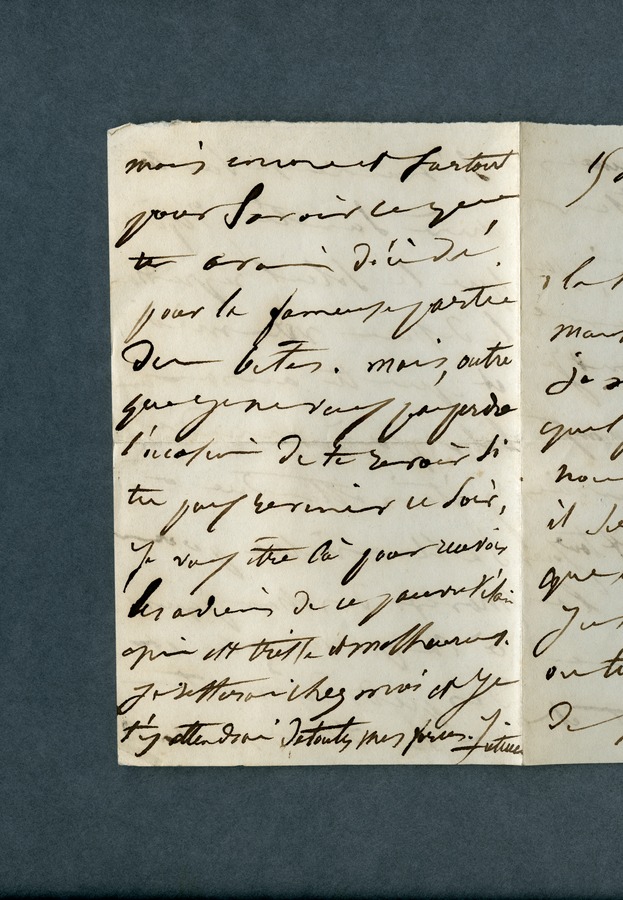 mais encore et surtout
pour savoir ce que
tu avais décidé.
pour la fameuse partie
des bêtes. mais, outre
que je ne veux pas perdre
l'occasion de te revoir si
tu peux revenir ce soir,
je veux être là pour recevoir
les adieux de ce pauvre
qui est triste et malheureux.
je resterai chez moi et je
t'y attendrai de toutes mes forces. je
1
à la
mau
je
quel
nou
il
que
ou tu
de